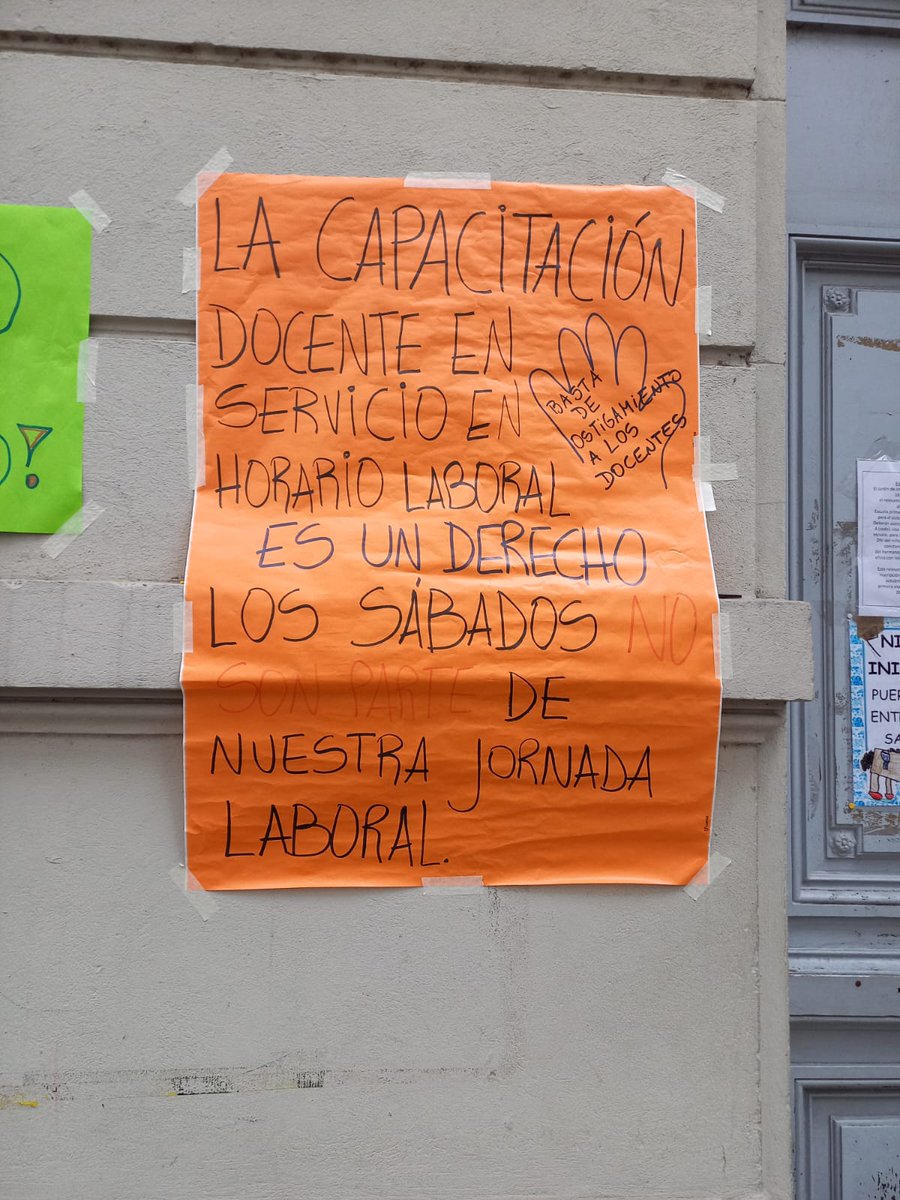 LA CAPACITACIÓN
DOCENTE EN
SERVICIO EN
HORARIO LABORAL
ES UN DERECHO
LOS SÁBADOS NO
SON PARTE DE
NUESTRA JORNADA
LABORAL.
BASTA
DE
OSTIGAMIENTO
A LOS
DOCENTES
O!
NI
INI
PUER
ENT
SA